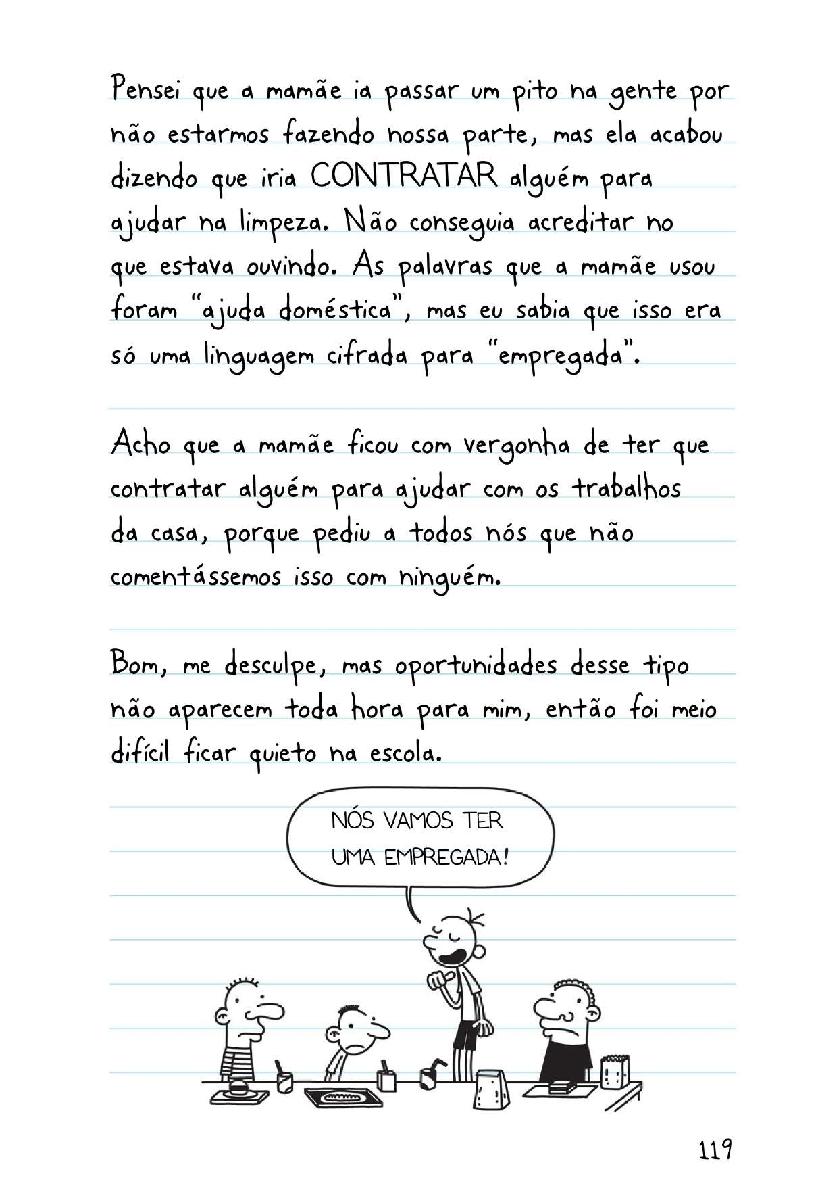 Pensei que a mamãe ia passar um pito na gente por
não estarmos fazendo nossa parte, mas ela acabou
dizendo que iria CONTRATAR alguém para
ajudar na limpeza. Não conseguia acreditar no
que estava ouvindo. As palavras que a mamãe usou
foram “ajuda doméstica”, mas eu sabia que isso era
só uma linguagem cifrada para “empregada”.
Acho que a mamãe ficou com vergonha de ter que
contratar alguém para ajudar com os trabalhos
da casa, porque pediu a todos nós que não
comentássemos isso com ninguém.
Bom, me desculpe, mas oportunidades desse tipo
não aparecem toda hora para mim, então foi meio
difícil ficar quieto na escola.
NÓS VAMOS TER
UMA EMPREGADA!
119